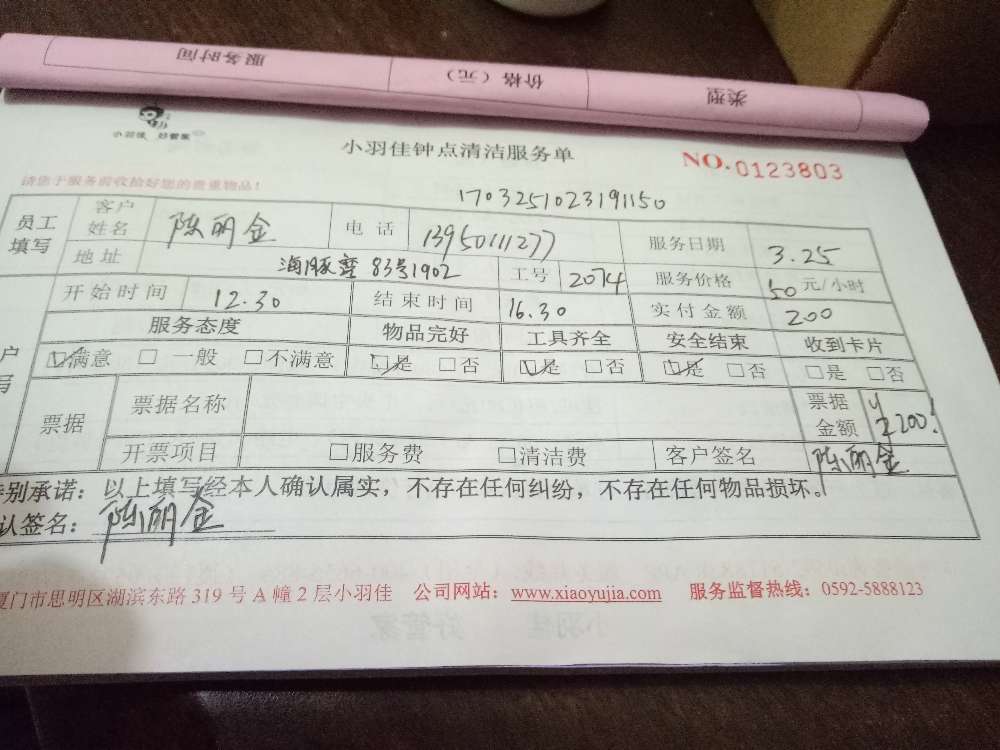 服务时间 价格（元） 类型
小羽佳 好管家
小羽佳钟点清洁服务单 NO.0123803
请您于服务前收拾好您的贵重物品！
1703251023191150
员工填写 客户姓名 陈丽金 电话 13950111277 服务日期 3.25
地址 海豚湾 83号1902 工号 2074 服务价格 50 元/小时
开始时间 12.30 结束时间 16.30 实付金额 200
服务态度 物品完好 工具齐全 安全结束 收到卡片
户 写 ☑满意 □一般 □不满意 ☑是 □否 ☑是 □否 ☑是 □否 □是 □否
票据 票据名称 票据金额 200
开票项目 □服务费 □清洁费 客户签名 陈丽金
别承诺：以上填写经本人确认属实，不存在任何纠纷，不存在任何物品损坏。
认签名：陈丽金
厦门市思明区湖滨东路 319 号 A 幢 2 层小羽佳 公司网站：www.xiaoyujia.com 服务监督热线：0592-5888123